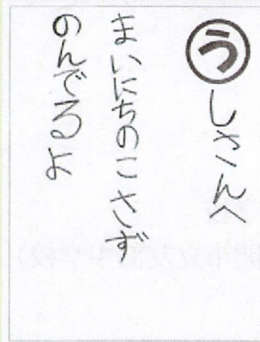 うしさんへ
まいにちのこさず
のんでるよ